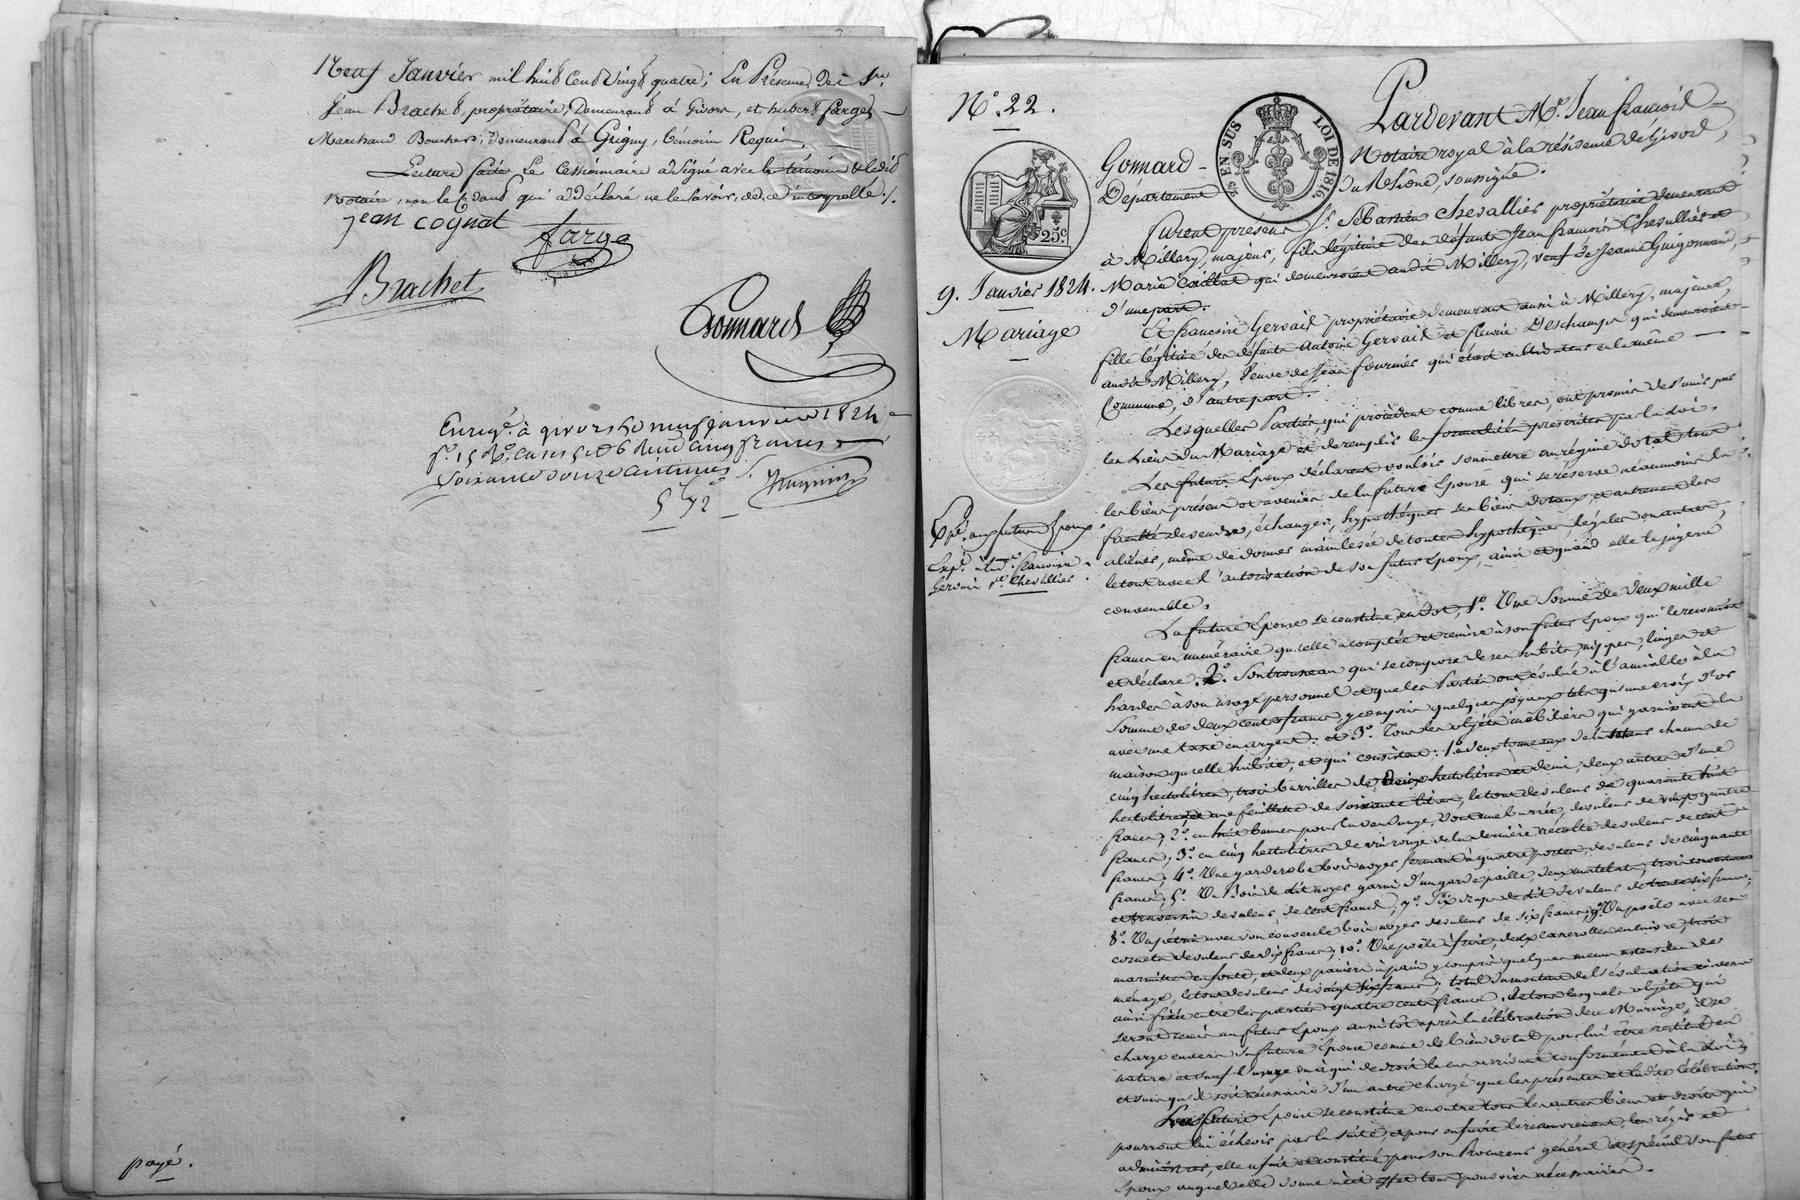 Neuf Janvier mil huit cent vingt quatre; En Présence de Srs
Jean Brachet, propriétaire, Demeurant à Givors, et hubert farges
Marchand Boucher, demeurant à Grigny, témoins Requis,
Lecture faite Le Cessionnaire a Signé avec les témoins & le dit
Notaire, non le Cédant qui a déclaré ne le savoir, de ce interpellé ./.
jean cognat farge
Brachet
Gonnard
Enregé. à givors le neuf janvier 1824
fo. 15 Ro. cases 5 et 6 Reçu cinq francs
Soixante douze centimes
5 f 72 c
payé.
No. 22.
25 EN SUS LOI DE 1816
25c.
9. Janvier 1824.
Mariage
Expé. aux futurs Epoux.
Expé. à lad. francoise
Gervais ve. Chevallier
Pardevant Me. Jean francois
Gonnard Notaire royal à la résidence de Givors,
Département du Rhône, soussigné.
Furent présens Sr. Sébastien Chevallier propriétaire demeurant
à Millery, majeur, fils légitime des défunts Jean francois Chevallier et
Marie Caillat qui demeuroient audit Millery, veuf de Jeanne Guigonnand,
d'une part.
Et francoise Gervais propriétaire demeurant aussi à Millery, majeure,
fille légitime des défunts Antoine Gervais et fleurie Deschamps qui demeuroient
audit Millery, Veuve de Jean fournier qui étoit cultivateur en la même
Commune, d'autre part.
Lesquelles Parties, qui procèdent comme libres, ont promis de s'unir par
les Liens du Mariage et de remplir les formalités prescrites par la Loi.
Les futurs Epoux déclarent vouloir soumettre au régime dotal tous
les biens présens et avenir de la future Epouse qui se réserve néanmoins la
faculté de vendre, échanger, hypothéquer ses biens dotaux, et autrement les
aliéner, même de donner mainlevée de toutes hypothèques légales ou autres,
le tout avec l'autorisation de son futur Epoux, ainsi et quand elle le jugera
convenable.
La future Epouse se constitue en dot, 1o. Une Somme de deux mille
francs en numéraire qu'elle a comptée et remise à son futur Epoux qui le reconnoit
et déclare. 2o. Son trousseau qui se compose de ses habits, nippes, linges et
hardes à son usage personnel et que les Parties ont évalué à l'amiable à la
Somme de deux cents francs, y compris quelques joyaux tels qu'une croix d'or
avec une tasse en argent. et 3o. Tous les objets mobiliers qui garnissent la
maison qu'elle habite, et qui consistent: 1o. deux tonneaux de la tenue chacun de
cinq hectolitres, trois barrilles de deux hectolitres et demi, deux autres d'un
hectolitre, et une feuillette de soixante litres, le tout de valeur de quarante huit
francs; 2o. en huit bennes pour la vendange, de valeur de vingt quatre
francs; 3o. en cinq hectolitres de vin rouge de la dernière récolte de valeur de cent
francs; 4o. Une garderobe bois noyer fermant à quatre portes, de valeur de cinquante
francs; 5o. Un Bois de lit noyer garni d'un garde paille, deux matelats, trois couvertures
et traversin de valeur de cent francs; 7o. Six draps de lit de valeur de trente six francs;
8o. Un pétrin avec son couvercle bois noyer de valeur de six francs; 9o. Un poële avec ses
cornets de valeur de dix francs; 10o. Une poële à frire, deux casserolles en cuivre, trois
marmites en fonte, et deux paniers à pain y compris quelques menus ustensiles de
ménage, le tout de valeur de vingt six francs; total du montant de l'évaluation ci dessus
ainsi fixée entre les parties quatre cents francs. Le tous lesquels objets qui
seront remis au futur Epoux aussitôt après la célébration de ce Mariage, il se
charge envers sa future Epouse comme de bien dotal pour lui être restitué en
nature et sauf l'usage ou à qui de droit le cas arrivant conformément à la Loi,
et sans qu'il soit nécessaire d'un autre chargé que les présentes et ladite célébration.
La future Epouse se constitue en outre tous les autres biens et droits qui
pourront lui échoir par la suite, et pour en faire le recouvrement, les régir et
administrer, elle a fait et constitué pour son Procureur général et spécial son futur
Epoux auquel elle donne à cet effet tous pouvoirs nécessaires.